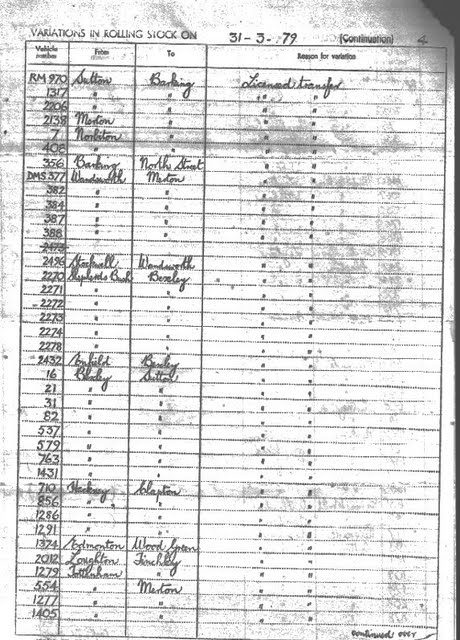 VARIATIONS IN ROLLING STOCK ON 31-3-79 (Continuation) 4
Vehicle number From To Reason for variation
RM 970 Sutton Barking Licensed transfer
1317 " " " "
2206 " " " "
2138 Merton " " "
7 Norbiton " " "
408 " " " "
356 Barking North Street " "
DMS 377 Wandsworth Merton " "
382 " " " "
384 " " " "
387 " " " "
388 " " " "
2473 " " " "
2496 Stockwell Wandsworth " "
2270 Shepherds Bush Bexley " "
2271 " " " "
2272 " " " "
2273 " " " "
2274 " " " "
2278 " " " "
2432 Enfield Bexley " "
16 Bexley Sutton " "
21 " " " "
31 " " " "
82 " " " "
537 " " " "
579 " " " "
763 " " " "
1431 " " " "
710 Hackney Clapton " "
856 " " " "
1286 " " " "
1291 " " " "
1374 Edmonton Wood Green " "
2012 Loughton Finchley " "
1279 Tottenham " " "
554 " Merton " "
1277 " " " "
1405 " " " "
continued over